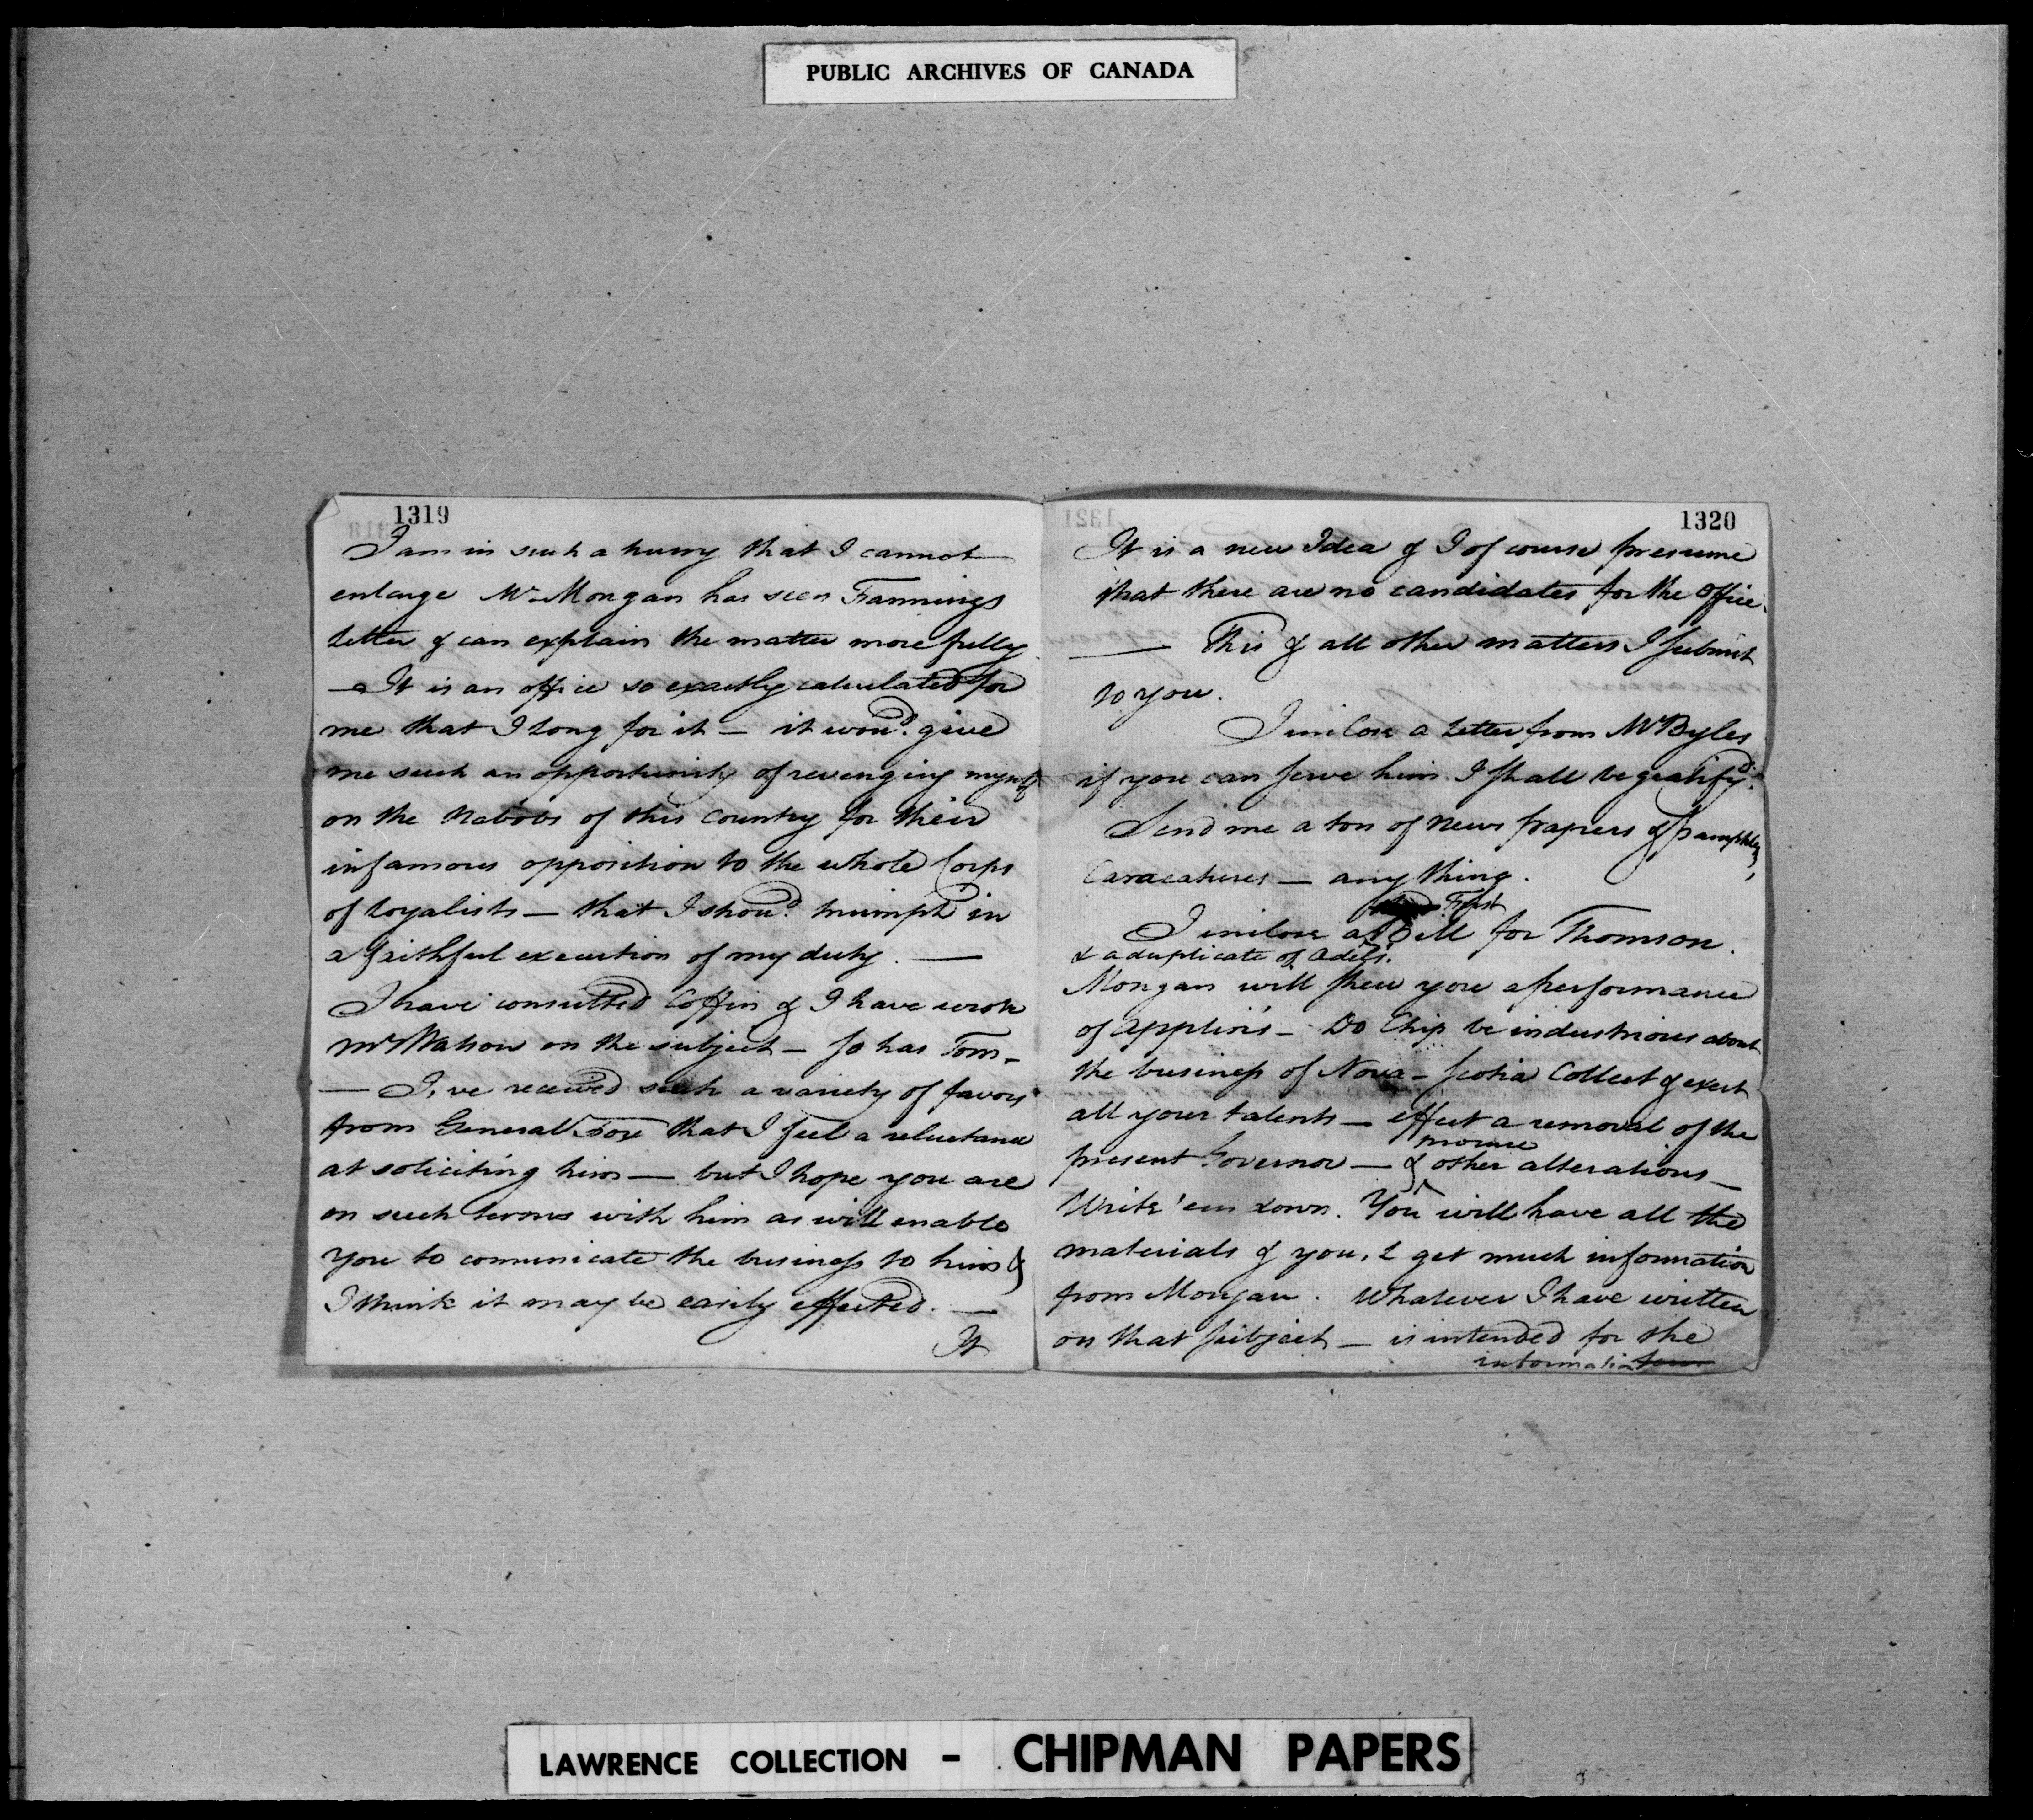 PUBLIC ARCHIVES OF CANADA
1319
I am in such a hurry that I cannot
enlarge Mr. Mongan has seen Fannings
Letter & can explain the matter more fully
— It is an office so exactly calculated for
me that I long for it — it wou'd. give
me such an opportunity of revenging myself
on the Nabobs of this Country for their
infamous opposition to the whole Corps
of Loyalists — that I shou'd. triumph in
a faithful execution of my duty. —
I have consulted Coffin & I have wrote
Mr Watson on the subject — so has Tom —
— I,ve received such a variety of favors
from General Fox that I feel a reluctance
at soliciting him — but I hope you are
on such terms with him as will enable
you to comunicate the business to him &
I think it may be easily effected. —
It
1320
It is a new Idea & I of course presume
that there are no candidates for the office.
— This & all other matters I submit
to you.
I inclose a Letter from Mr Byles
if you can serve him I shall be gratify'd.
Send me a ton of News papers & pamphlets,
Caracatures — any thing.
First
I inclose a Bill for Thomson.
& a duplicate of
Mongan will shew you a performance
of — Do Chip be industrious about
the business of Nova-Scotia Collect & exert
all your talents — effect a removal of the
present Governor — & other alterations —
Write 'em down. You will have all the
materials & you,l get much information
from Mongan. Whatever I have written
on that subject — is intended for the
information
LAWRENCE COLLECTION - CHIPMAN PAPERS